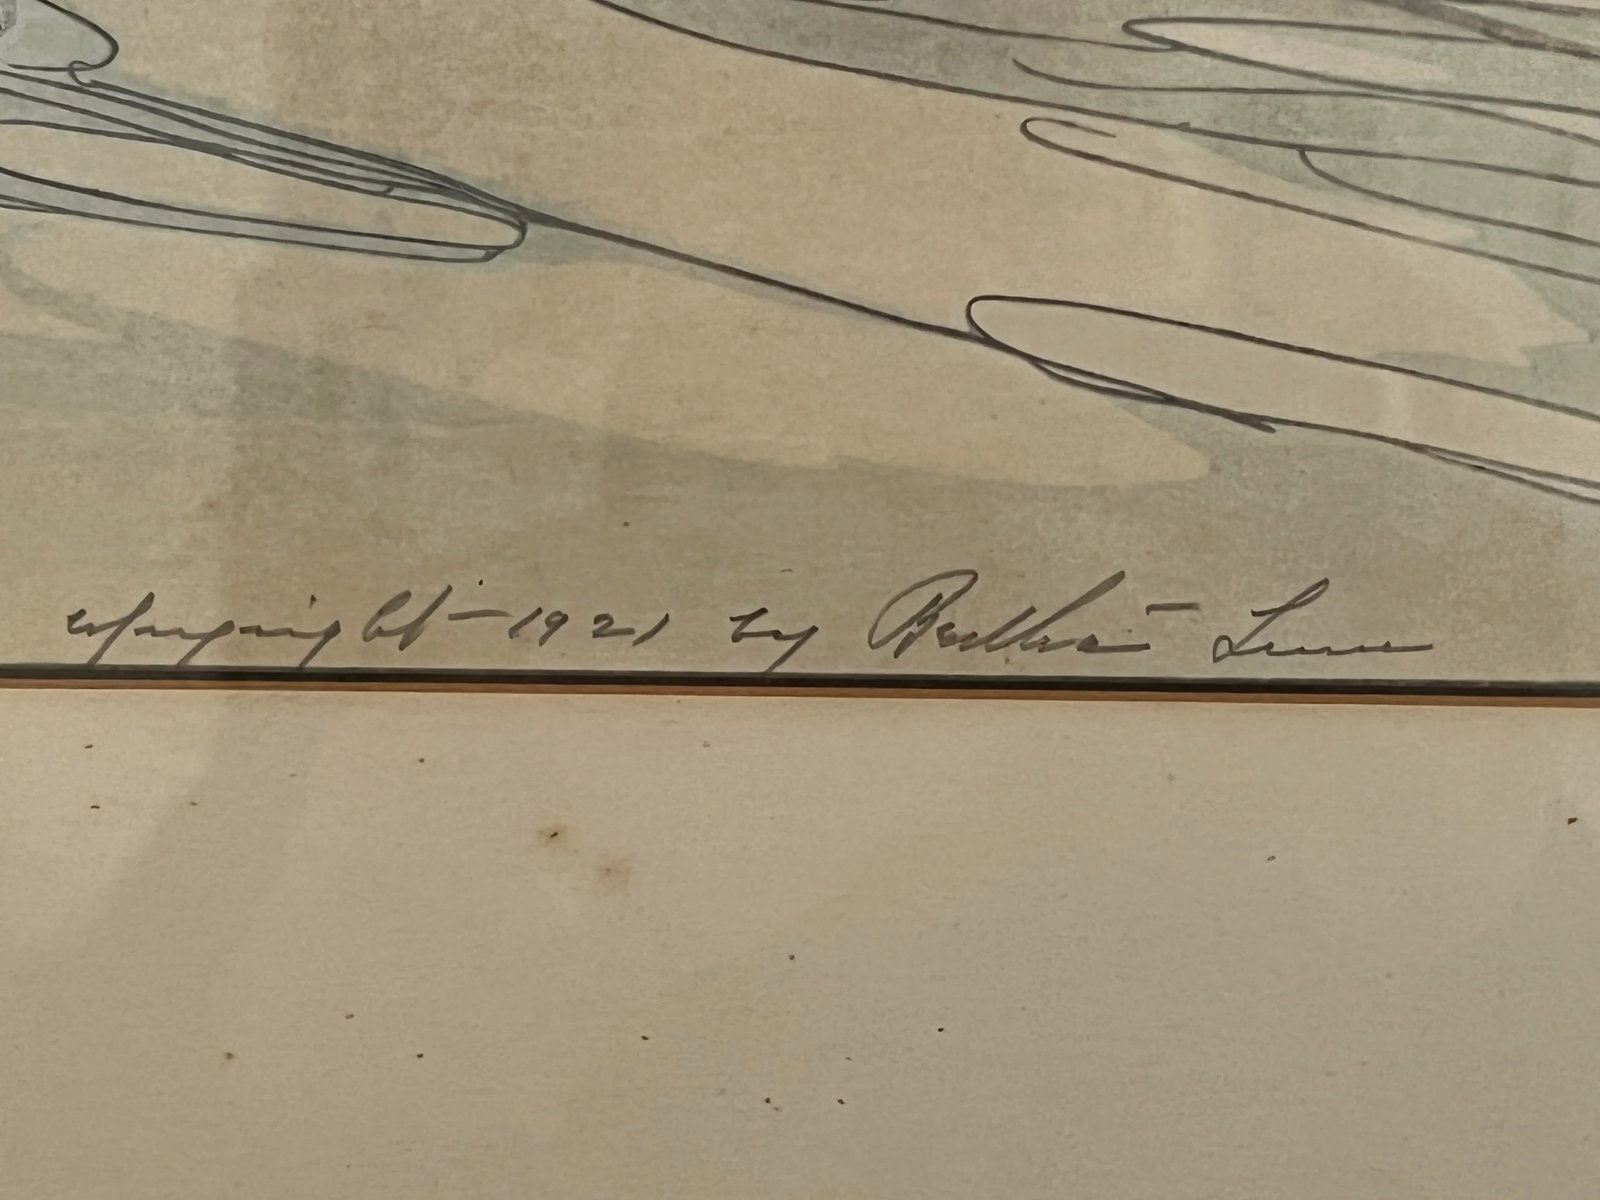 copyright - 1921 by Bertha Lum